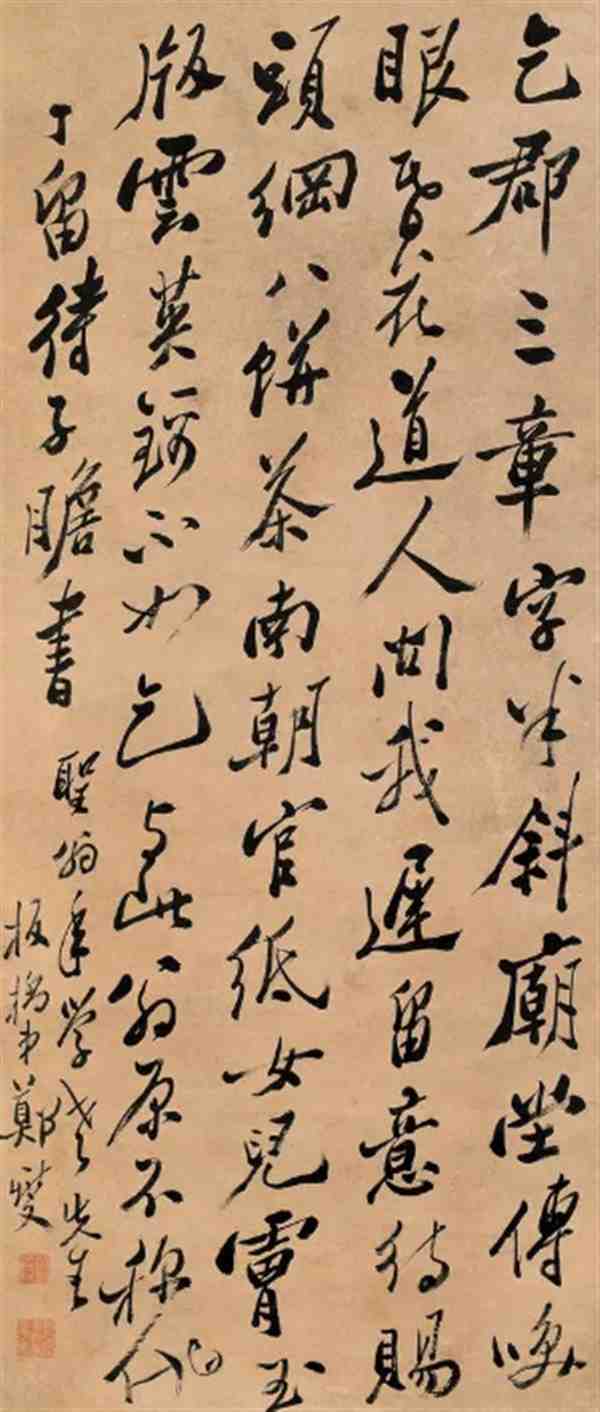 乞郡三章字半斜廟堂傳咲
眼昬花道人問我遲留意待賜
頭綱八餅茶南朝官紙女兒膚玉
版雲英不如乞与此翁原不称他
丁留待子瞻書
聖翁年學老先生
板橋弟鄭燮